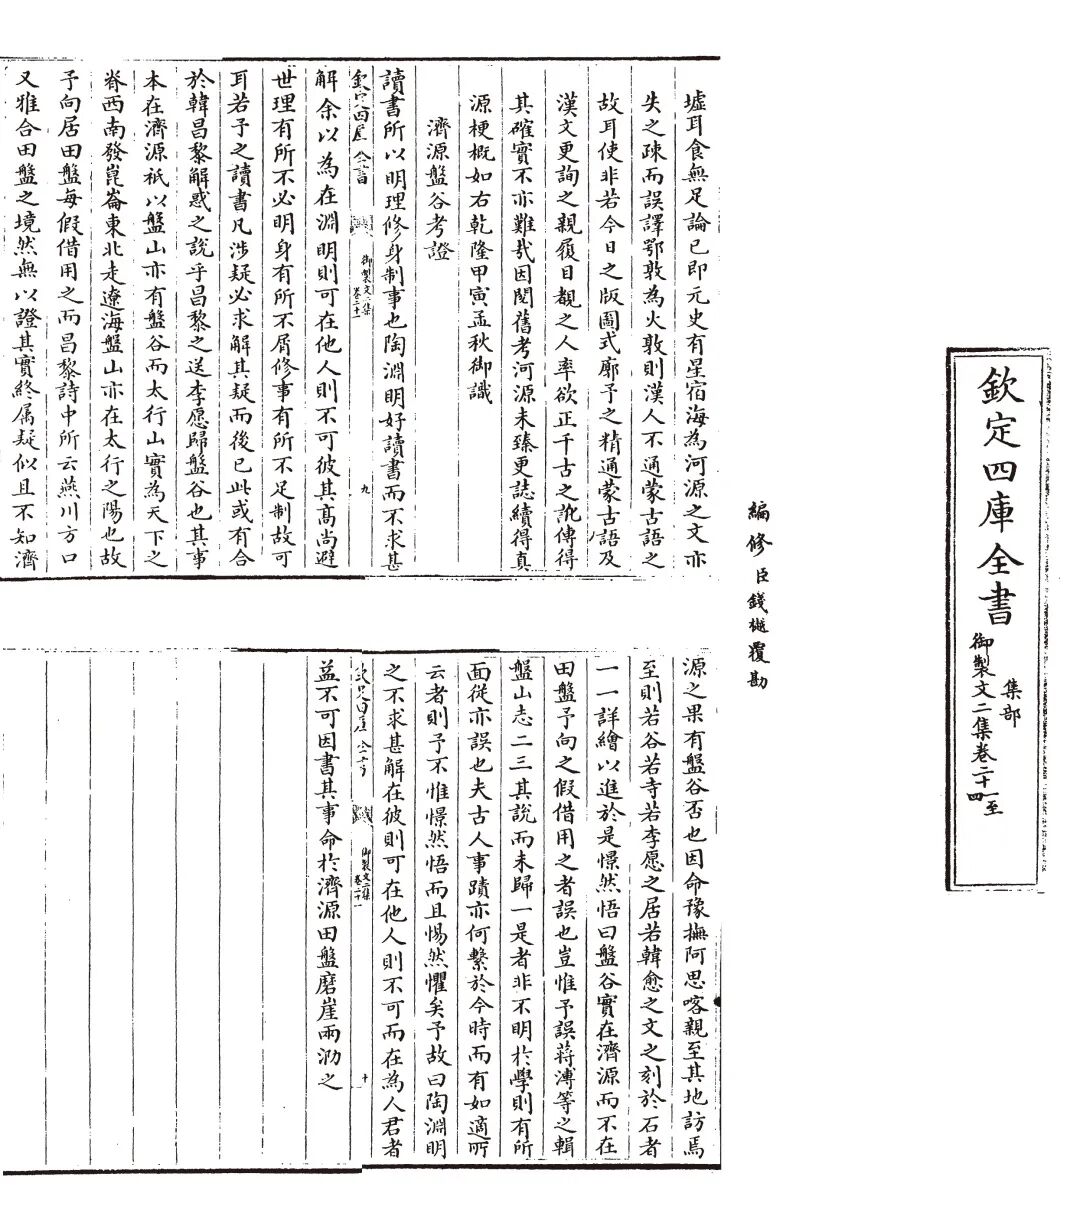 欽定四庫全書
集部
御製文二集卷二十一至
四
編修臣錢樾覆勘
墟耳食無足論已即元史有星宿海為河源之文亦
失之疎而誤譯鄂敦為火敦則漢人不通蒙古語之
故耳使非若今日之版圖式廓予之精通蒙古語及
漢文更詢之親履目覩之人率欲正千古之訛傳得
其確實不亦難㢤因閱舊考河源未臻更誌續得真
源梗概如右乾隆甲寅孟秋御識
濟源盤谷考證
讀書所以明理修身制事也陶淵明好讀書而不求甚
欽定四庫全書
御製文二集
卷二十一
九
解余以為在淵明則可在他人則不可彼其髙尚避
世理有所不必明身有所不屑修事有所不足制故可
耳若予之讀書凡涉疑必求解其疑而後已此或有合
於韓昌黎解惑之說乎昌黎之送李愿歸盤谷也其事
本在濟源祇以盤山亦有盤谷而太行山實為天下之
脊西南發崑崙東北走遼海盤山亦在太行之陽也故
予向居田盤每假借用之而昌黎詩中所云燕川方口
又雅合田盤之境然無以證其實終属疑似且不知濟
源之果有盤谷否也因命豫撫阿思喀親至其地訪焉
至則若谷若寺若李愿之居若韓愈之文之刻於石者
一一詳繪以進於是憬然悟曰盤谷實在濟源而不在
田盤予向之假借用之者誤也豈惟予誤蔣溥等之輯
盤山志二三其說而未歸一是者非不明於學則有所
面從亦誤也夫古人事蹟亦何繫於今時而有如適所
云者則予不惟憬然悟而且惕然懼矣予故曰陶淵明
之不求甚解在彼則可在他人則不可而在為人君者
欽定四庫全書
御製文二集
卷二十一
十
益不可因書其事命於濟源田盤磨崖兩泐之